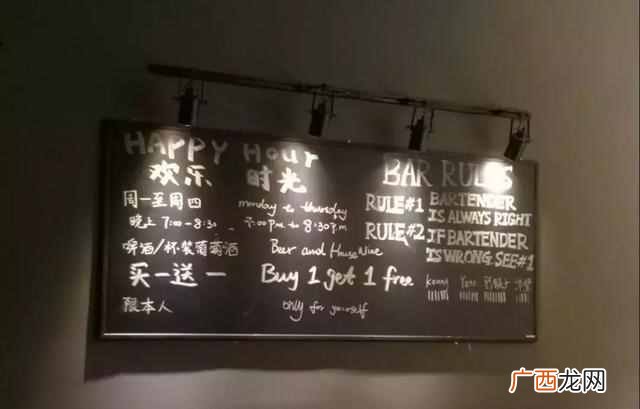 HAPPY Hour
欢乐 时光
周一至周四 monday to thursday
晚上 7:00-8:30 7:00p.m to 8:30p.m
啤酒/杯装葡萄酒 Beer and House Wine
买一送一 Buy 1 get 1 free
限本人 only for yourself
BAR RULES
RULE#1 BARTENDER
IS ALWAYS RIGHT
RULE#2 IF BARTENDER
IS WRONG SEE#1
广西龙网